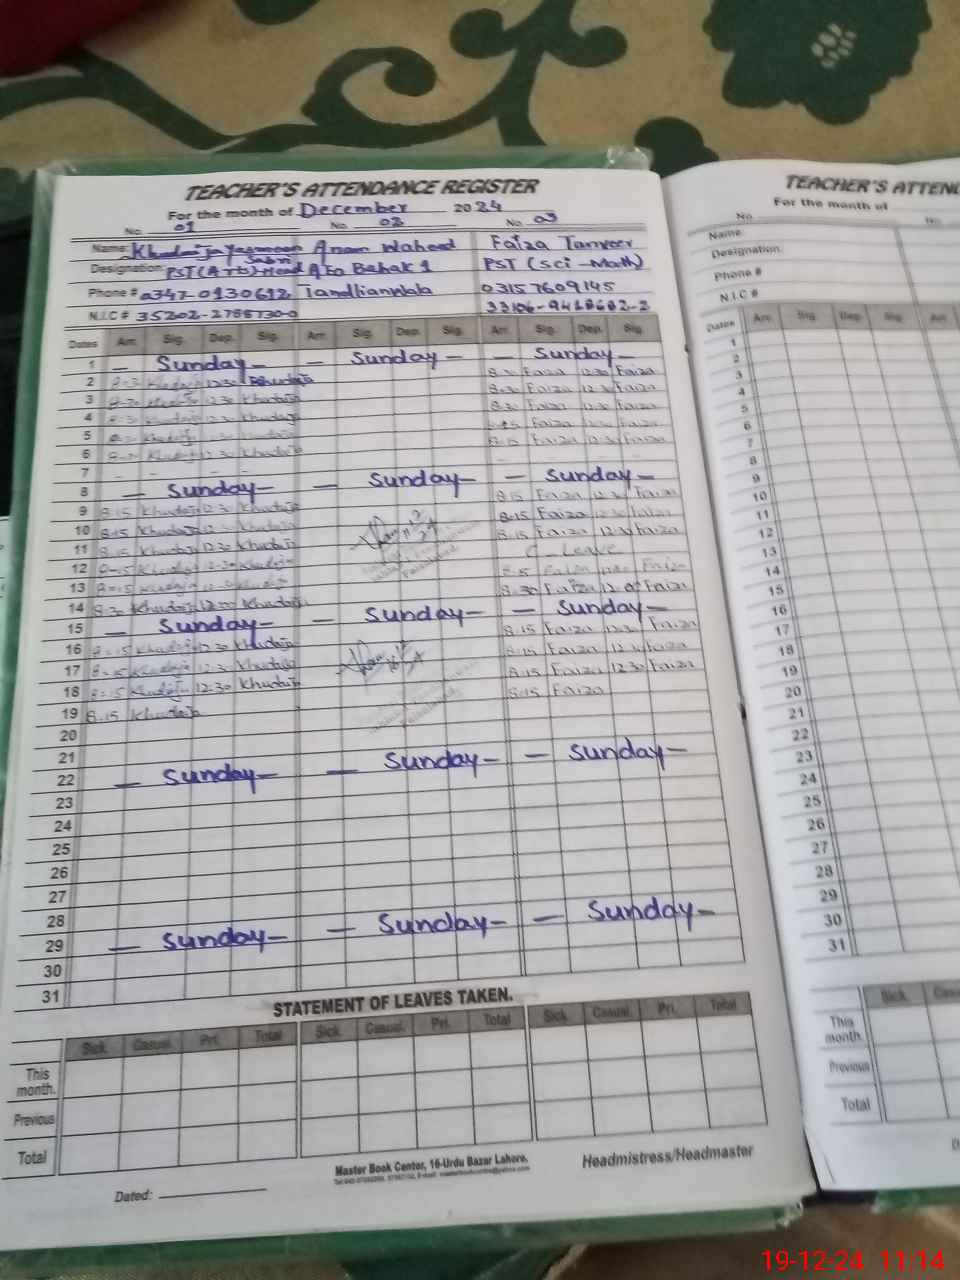 TEACHER'S ATTENDANCE REGISTER
For the month of December 2024
No. 01 No. 02 No. 03
Name: Khudaija Yasmeen Anam Waheed Faiza Tanveer
Sabri
Designation: PST (Arts) Head AEO Bahak 1 PST (Sci-Math)
Phone # 0347-0130612 Tandlianwala 03157609145
N.I.C #
Dates Arr. Sig. Dep. Sig. Arr. Sig. Dep. Sig. Arr. Sig. Dep. Sig.
1 — Sunday — — Sunday — — Sunday —
2 Khudaija 12:30 Khudaija 8:30 Faiza 12:30 Faiza
3 Khudaija 12:30 Khudaija 8:30 Faiza 12:30 Faiza
4 Khudaija 12:30 Khudaija 8:30 Faiza 12:30 Faiza
5 Khudaija Khudaija 8:15 Faiza Faiza
6 Khudaija 12:30 Khudaija 8:15 Faiza 12:30 Faiza
7 - - - -
8 — Sunday — — Sunday — — Sunday —
9 8:15 Khudaija 12:30 Khudaija 8:15 Faiza 12:30 Faiza
10 8:15 Khudaija 12:30 Khudaija 8:15 Faiza 12:30 Faiza
11 8:15 Khudaija 12:30 Khudaija 8:15 Faiza 12:30 Faiza
12 8:15 Khudaija 12:30 Khudaija C-Leave
13 8:15 Khudaija Khudaija Faiza Faiza
14 8:30 Khudaija 12:00 Khudaija 8:30 Faiza 12:00 Faiza
15 — Sunday — — Sunday — — Sunday —
16 8:15 Khudaija 12:30 Khudaija 8:15 Faiza 12:30 Faiza
17 8:15 Khudaija 12:30 Khudaija 8:15 Faiza 12:30 Faiza
18 8:15 Khudaija 12:30 Khudaija 8:15 Faiza 12:30 Faiza
19 8:15 Khudaija 8:15 Faiza
20
21
22 — Sunday — — Sunday — — Sunday —
23
24
25
26
27
28
29 — Sunday — — Sunday — — Sunday —
30
31
STATEMENT OF LEAVES TAKEN.
Sick. Casual. Pri. Total Sick. Casual. Pri. Total Sick. Casual. Pri. Total
This month.
Previous
Total
Master Book Center, 16-Urdu Bazar Lahore.
Headmistress/Headmaster
Dated:
TEACHER'S ATTEN
For the month of
No. No.
Name:
Designation
Phone #
N.I.C #
Dates Arr. Sig. Dep. Sig. Arr.
1
2
3
4
5
6
7
8
9
10
11
12
13
14
15
16
17
18
19
20
21
22
23
24
25
26
27
28
29
30
31
Sick.
This month.
Previous
Total
19-12-24 11:14